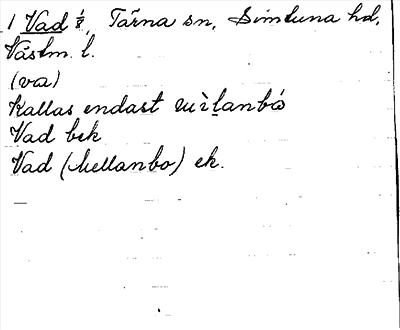 1 Vad 1/8, Tärna sn, Simtuna hd,
Västm. l.
(va)
Kallas endast mìlanbó
Vad bek
Vad (Mellanbo) ek.